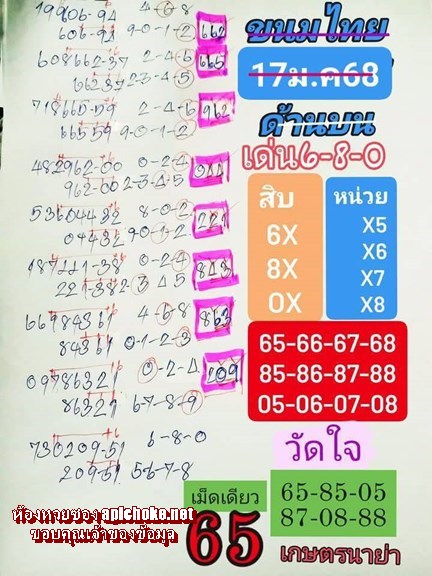 19906-94 4-6-8
606-94 9-0-1-2 662
608662-37 2-4-6
66237 2-3-4-5 665
718665-59 2-4-6
66559 9-0-1-2 962
482962-00 0-2-4
962-00 2-3-4-5
53604432 8-0-2
04432 9-0-1-2 221
187221-38 0-2-4
221-38 2-3-4-5 843
66984361 4-6-8
84361 0-1-2-3 863
09786321 0-2-4
86321 6-7-8-9 109
730209-51 6-8-0
209-51 5-6-7-8
ขนมไทย
17ม.ค68
ด้านบน
เด่น6-8-0
สิบ
6X
8X
0X
หน่วย
X5
X6
X7
X8
65-66-67-68
85-86-87-88
05-06-07-08
วัดใจ
เม็ดเดียว
65
65-85-05
87-08-88
เกษตรนาย่า
ห้องหวยซอง apichoke.net
ขอบคุณเจ้าของข้อมูล